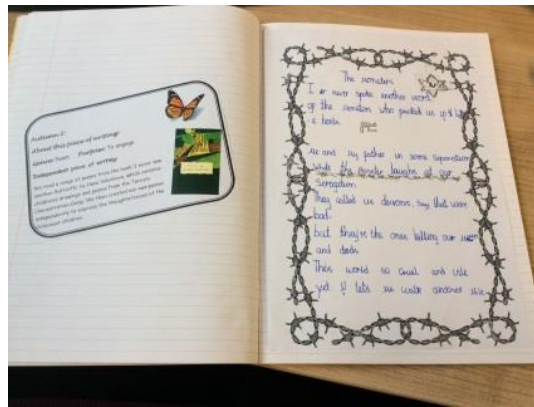 Autumn 2:
About this piece of writing:
Genre: Poem Purpose: To engage
Independent piece of writing
We read a range of poems from the book I never saw
another Butterfly by Hana Volavkova, which contains
children's drawings and poems from the Terezin
Concentration Camp. We then created our own poems
independently to express the thoughts
The monsters
I never spoke another word
of the monsters who pushed us
a herd.
me and my father in some separation
while the laughs at our
segregation
They called us demons, say that were
bad.
but they're the ones killing our
and dads
This world so cruel and vile
yet it lets us wake another